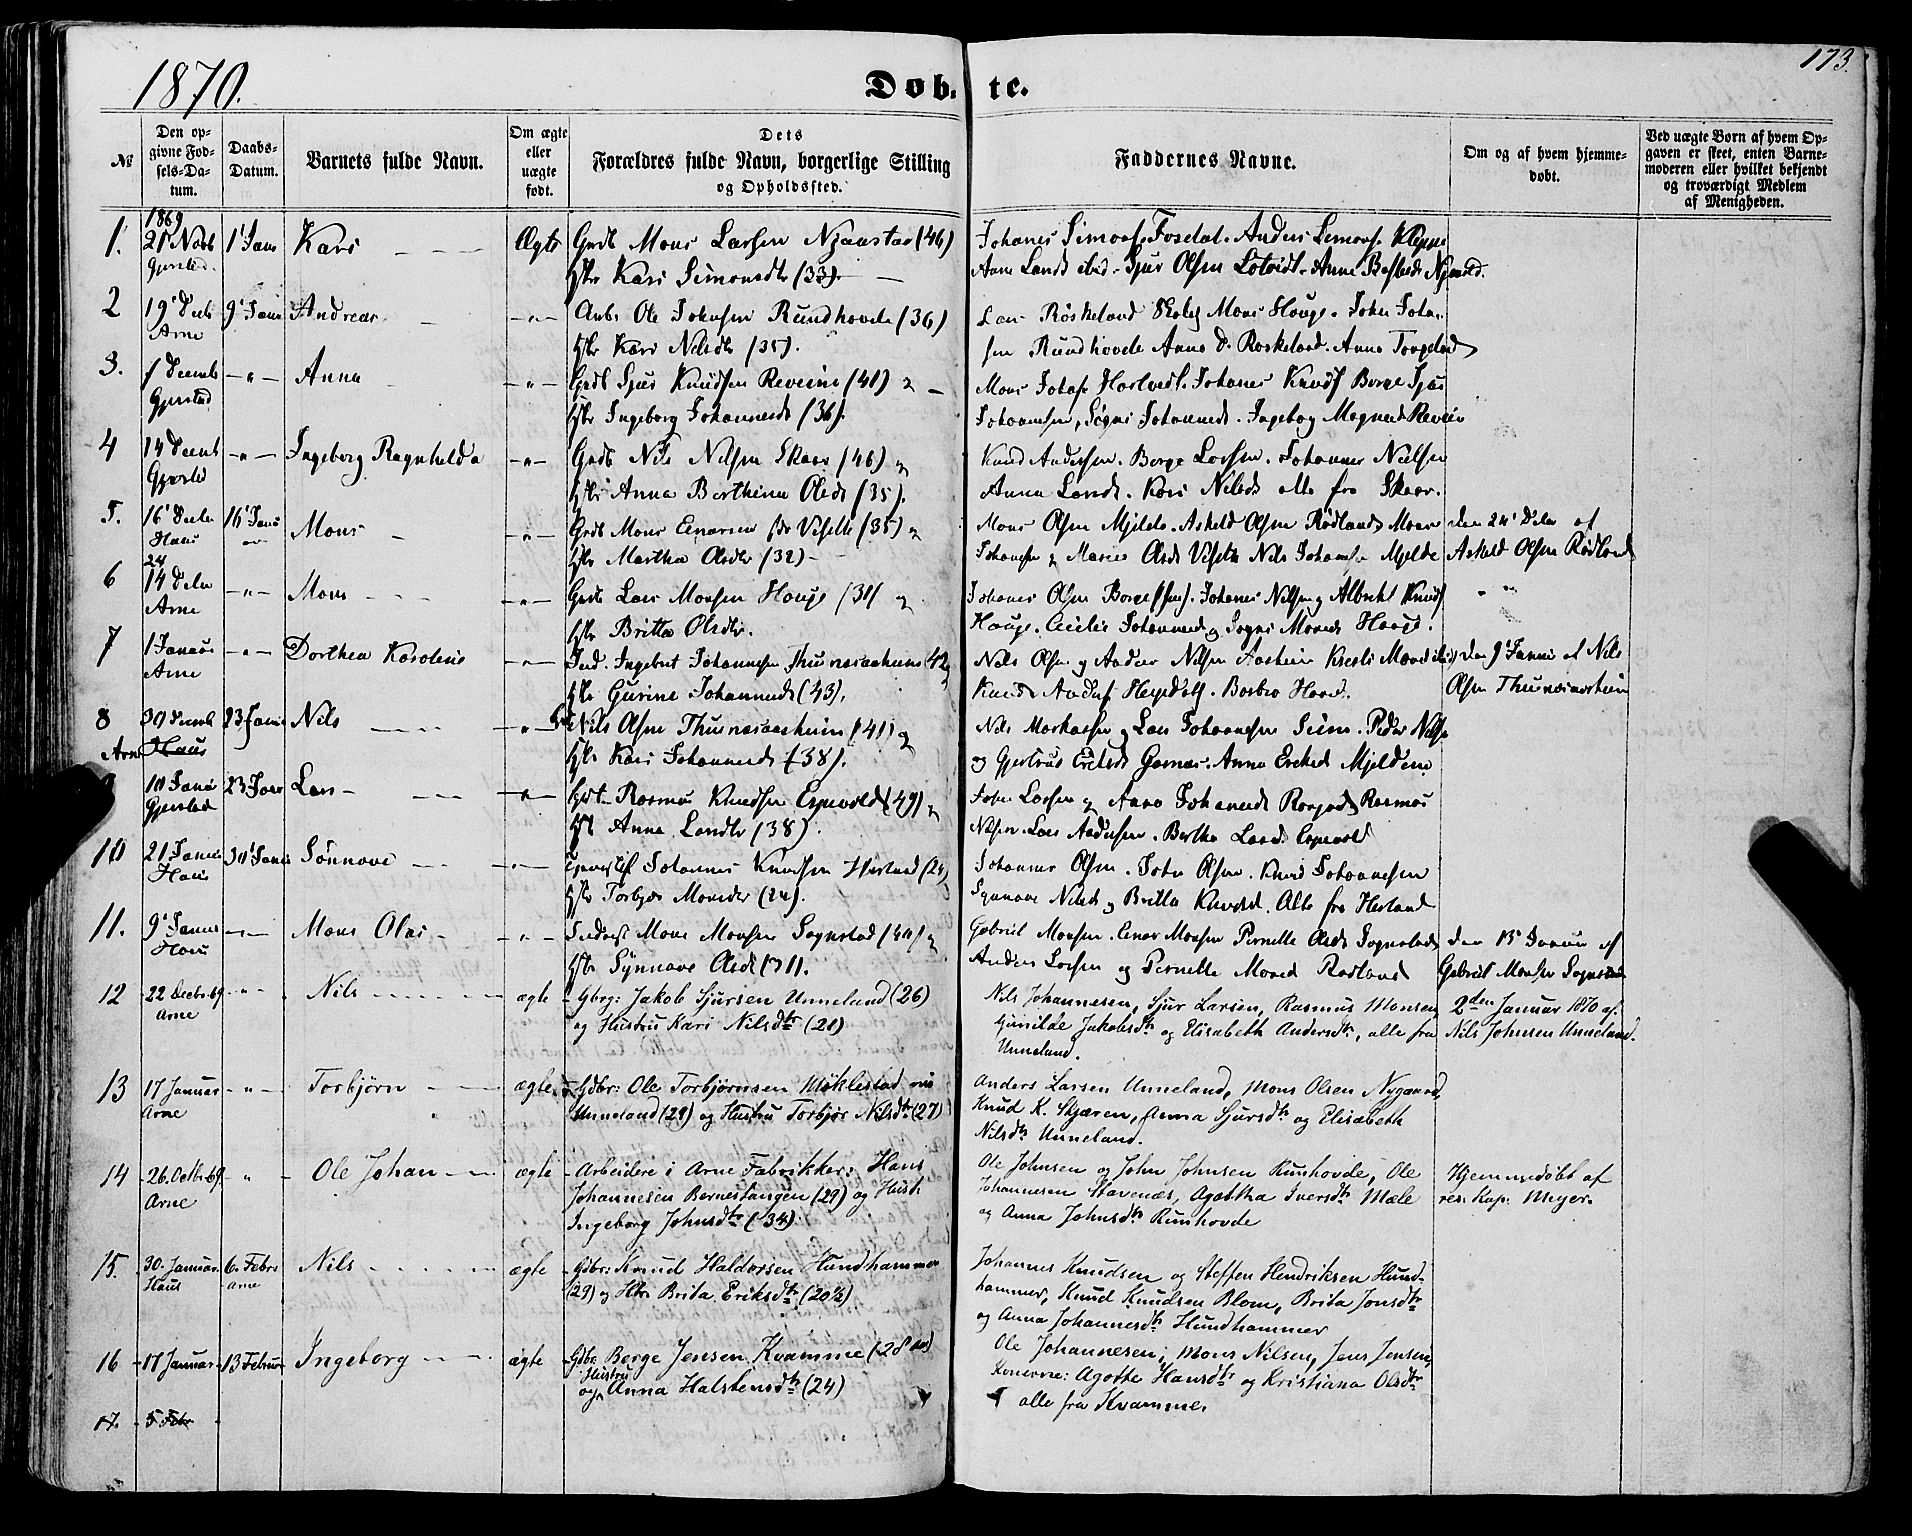 1870.
Døb. te.
173.
№
Den op-
givne Fød-
sels-Da-
tum.
Daabs-
Datum.
Barnets fulde Navn.
Om ægte
eller
uægte
født.
Dets
Forældres fulde Navn, borgerlige Stilling
og Opholdssted.
Faddernes Navne.
Om og af hvem hjemme-
døbt.
Ved uægte Børn af hvem Op-
gaven er skeet, enten Barne-
moderen eller hvilket bekjendt
og troværdigt Medlem
af Menigheden.
1869
1. 21 Novb 1 Janr Kari Ægte Grdb Mons Larsen Njaastad (46)
Gjersted. Hstr Kari Simonsdtr (33).
Johanes Simonsen Fosdal. Anders Simons. Kleppe
Anna Larsd ibid. Sjur Olsen Lotvidt. Anne
2 19 Decb 9 Janr Andreas Arb. Ole Johnsen Rundhovde (36)
Arne Hstr Kari Nilsdtr (35).
Lars Røskeland Mons Houge. John Joha-
sen Rundhovde Anna Roskeland. Anna
3. 1 Decemb Anna Grdb Sjur Knudsen Reveim (41) og
Gjersted Hstr Ingeborg Johannesd (36).
Mons Hartvedt. Johanes Knuds Borge Sjur
Johannesen, Sigri Johannesd. Ingeborg Magnesd Reveim
4 14 Decemb Ingeborg Ragnhilda Grdb Nils Nilsen Skaar (46) og
Gjersted Hstr Anna Berthina Olsd (35).
Knud Andersen. Borge Larsen. Johannes Nielsen
Anna Larsd. Kari Nilsd alle fra Skaar.
5. 16 Decbr 16 Janr Mons Grdb Mons Einarsen Viselte (35) og
Haus Hstr Martha Olsdtr (32)
Mons Olsen Mjelde. Askeld Olsen Rødland Mons
Johannesen og Marie Olsd Nils Johannes Mjelde
den 24 Decbr af
Askeld Olsen Rødland
24
6 14 Decbr Mons Grdb Lars Monsen Houge (31) og
Arne Hstr Britta Olsdtr.
Johanes Olsen Borge. Johanes Nilsen og Albrekt Knuds
Houge. Cecilie Johannesd og Sigri Monsd Houge.
7 1 Januar Dorthea Karoline Ind. Ingebrt Johannesen Thunesaasheim (42)
Arne Hstr Gurine Johannesd (43).
Nils Olsen og Anders Nilsen Aasheim Kirsti Monsd ibid
Barbro
den 9 Januar af Nils
Olsen Thunesaasheim
8 30 Decemb 23 Janr Nils Nils Olsen Thunesaasheim (41) og
Arne Haus Hstr Kari Johannesd (38).
Nils Markussen og Lars Johannesen Seim. Peder Nilsen
og Gjertrud Eriksd Garnes. Anna Eriksd Mjeldeim
10 Janr 23 Janr Lars Rasmus Knudsen Espevold (49) og
Gjersted Hst Anna Larsdtr (38).
John Larsen og Anna Johannesd Rasmus
Nilsen. Lars Andersen. Bertha Larsd. Espevold
10 21 Januar 30 Janr Sønnove Johannes Knudsen Herland (24)
Haus Hstr Torbjør Monsdtr (24).
Johannes Olsen. John Olsen. Knud Johannesen
Synnove Nilsd og Britta Knudsd. Alle fra Herland
11. 9 Januar Mons Olai Mons Monsen Songnstad
Haus Hstr Synnove Olsd (31).
Gabriel Monsen. Einar Monsen Pernelle Olsd Songnstad
Anders Larsen og Pernelle Monsd Rødland
den 15 Januar af
Gabriel Monsen Songnstad
12 22 Decbr. 69 -"- Nils ægte Gbrg: Jakob Sjursen Unneland (26)
Arne og Hustru Kari Nilsdtr (21)
Nils Johannesen, Sjur Larsen, Rasmus Monsen,
Gunilde Jakobsdtr og Elisabeth Andersdtr, alle fra
Unneland.
2den Januar 1870 af
Nils Johnsen Unneland.
13 17 Januar -"- Torbjørn ægte Gdbr: Ole Torbjørnsen Møklestad nu
Arne Unneland (29) og Hustru Torbjør Nilsdtr (27)
Anders Larsen Unneland, Mons Olsen Nygaard,
Knud K. Skjæren, Anna Sjursdtr og Elisabeth
Nilsdtr Unneland.
14 26. Octbr. 69 " Ole Johan ægte Arbeidere i Arne Fabrikker: Hans
Arne Johannesen Bornestangen (29) og Hust.
Ingeborg Johnsdtr (34)
Ole Johnsen og John Johnsen Runhovde, Ole
Johannesen Stavenæs, Agattha Iversdtr Mæle
og Anna Johnsdtr Runhovde
Hjemmedøbt af
res: Kap: Meyer.
15. 30. Januar 6. Febr Nils ægte Gdbr: Knud Haldorsen Hundhammer
Haus Arne (29) og Hstr Brita Eriksdtr (20½)
Johannes Knudsen og Steffen Hendriksen Hund-
hammer, Knud Knudsen Blom, Brita Jonsdtr
og Anna Johannesdtr Hundhammer
16 17 Januar 13 Februar Ingeborg ægte Gdbr. Børge Jensen Kvamme (28 aar)
Hustru
og Anna Halstensdtr (24)
Ole Johannesen, Mons Nilsen, Jens Jensen,
Konerne: Agotte Hansdtr og Kristiana Olsdtr
alle fra Kvamme.
17. 5 Febr